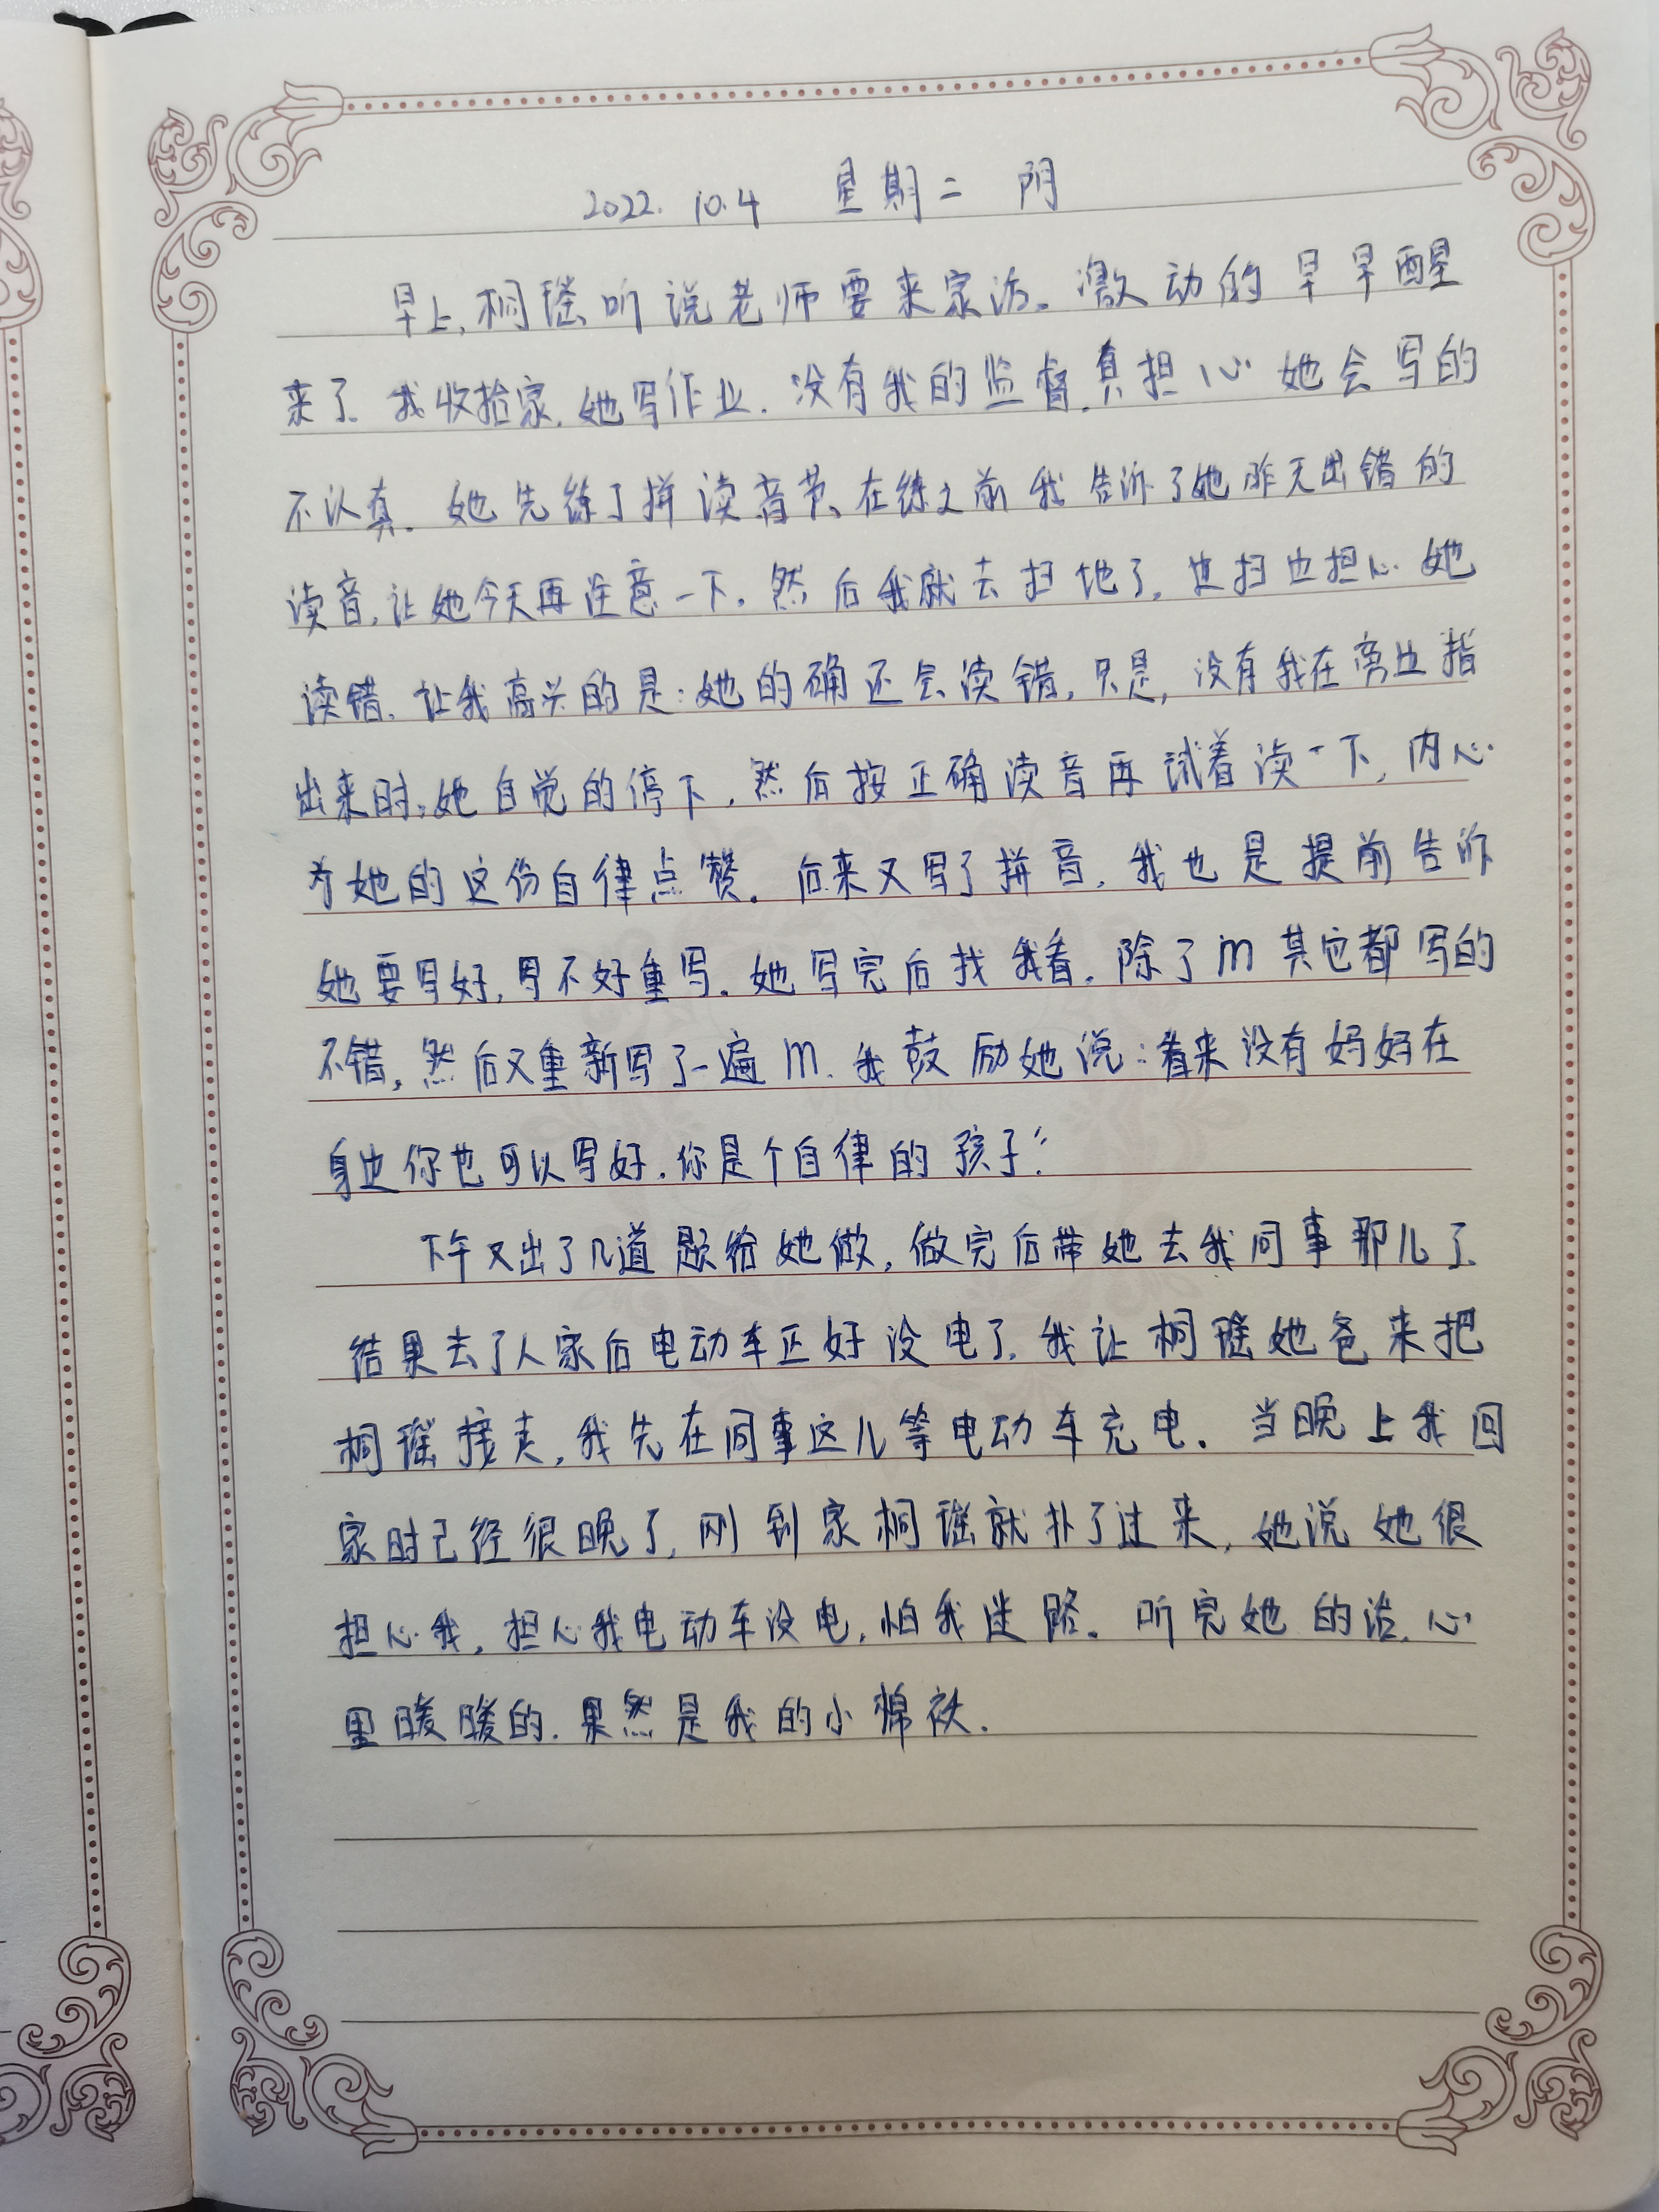 2022. 10.4 星期二 阴
早上,桐瑶听说老师要来家访。激动的早早醒
来了.我收拾家.她写作业.没有我的监督,真担心她会写的
不认真.她先练了拼读音节、在练之前我告诉了她昨天出错的
读音,让她今天再注意一下.然后我就去扫地了,边扫边担心她
读错.让我高兴的是:她的确还会读错,只是,没有我在旁边指
出来时,她自觉的停下,然后按正确读音再试着读一下,内心
为她的这份自律点赞.后来又写了拼音,我也是提前告诉
她要写好,写不好重写.她写完后找我看.除了m其它都写的
不错,然后又重新写了一遍m.我鼓励她说:看来没有妈妈在
身边你也可以写好.你是个自律的孩子."
下午又出了几道题给她做,做完后带她去我同事那儿了.
结果去了人家后电动车正好没电了.我让桐瑶她爸来把
桐瑶接走,我先在同事这儿等电动车充电.当晚上我回
家时已经很晚了,刚到家桐瑶就扑了过来,她说她很
担心我,担心我电动车没电,怕我迷路.听完她的话.心
里暖暖的.果然是我的小棉袄.